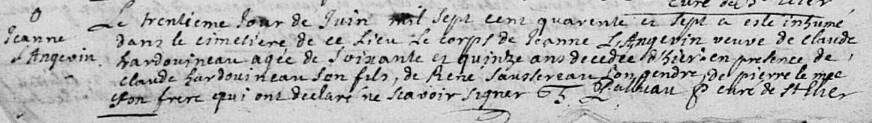 cure de St elier
O
Jeanne
L'Angevin
Le trentieme Jour de Juin mil sept cent quarente et sept a esté inhumé
dans le cimetiere de ce Lieu Le corps de Jeanne L'Angevin veuve de claude
hardouineau agée de Soixante et quinze ans decedée d'hier en presence de
claude hardouineau Son fils, de René Sausereau Son gendre, de pierre le
Son frere qui ont declaré ne Scavoir Signer P cure de St elier